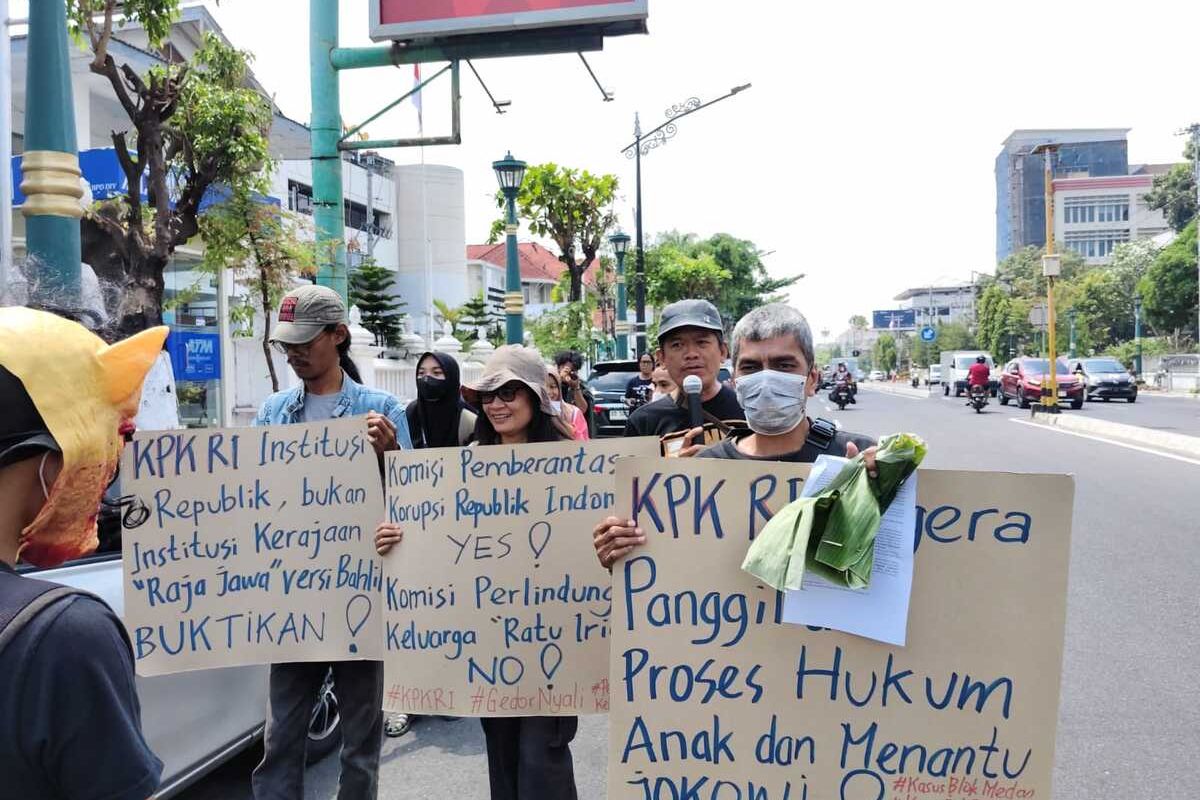 KPK RI Institusi
Republik, bukan
Institusi Kerajaan
"Raja Jawa" versi Bahlil
BUKTIKAN!
Komisi Pemberantas
Korupsi Republik Indon
YES!
Komisi Perlindung
Keluarga "Ratu Iri
NO!
#KPKRI #GedorNyali
KPK RI gera
Panggil
Proses Hukum
Anak dan Menantu
Jokowi!
#Kasus Blok Medan
ATM
BPD DIY